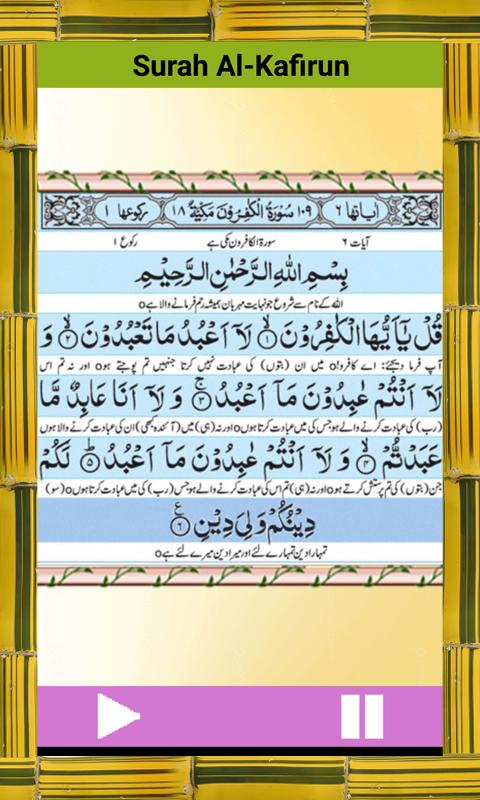 Surah Al-Kafirun
اٰیاتها ٦ ١٠٩ سُوْرَةُ الْكٰفِرُوْنَ مَكِّیَّةٌ ١٨ ركوعها ١
آیات ٦ سورۃ الکافرون مکی ہے رکوع ١
بِسْمِ اللهِ الرَّحْمٰنِ الرَّحِیْمِ
اللہ کے نام سے شروع جو نہایت مہربان ہمیشہ رحم فرمانے والا ہے o
قُلْ یٰۤاَیُّهَا الْكٰفِرُوْنَ ۙ﴿١﴾ لَاۤ اَعْبُدُ مَا تَعْبُدُوْنَ ۙ﴿٢﴾ وَ
آپ فرما دیجئے: اے کافرو! o میں ان (بتوں) کی عبادت نہیں کرتا جنہیں تم پوجتے ہو o اور نہ تم اس
لَاۤ اَنْتُمْ عٰبِدُوْنَ مَاۤ اَعْبُدُ ۚ﴿٣﴾ وَ لَاۤ اَنَا عَابِدٌ مَّا
(رب) کی عبادت کرنے والے ہو جس کی میں عبادت کرتا ہوں o اور نہ (ہی) میں (آئندہ کبھی) ان کی عبادت کرنے والا ہوں
عَبَدْتُّمْ ۙ﴿٤﴾ وَ لَاۤ اَنْتُمْ عٰبِدُوْنَ مَاۤ اَعْبُدُ ؕ﴿٥﴾ لَكُمْ
جن (بتوں) کی تم پرستش کرتے ہو o اور نہ (ہی) تم اس کی عبادت کرنے والے ہو جس (رب) کی میں عبادت کرتا ہوں o (سو)
دِیْنُكُمْ وَلِیَ دِیْنِ ﴿٦﴾ ع
تمہارا دین تمہارے لئے اور میرا دین میرے لئے ہے o